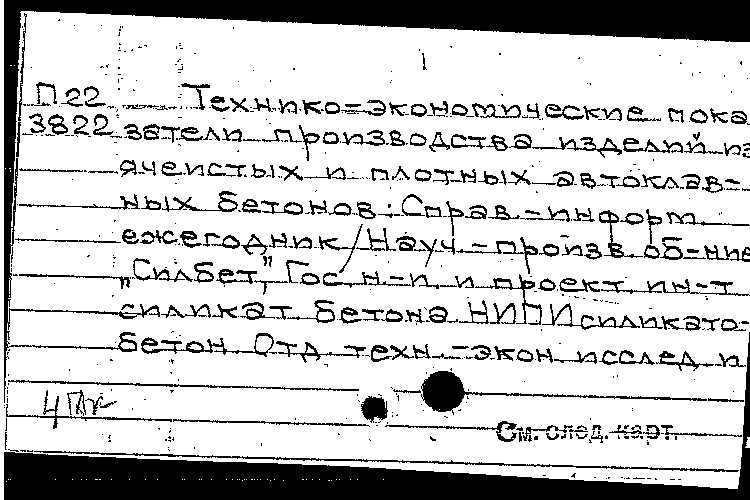 1
П22 Технико-экономические пока
3822 затели производства изделий из
ячеистых и плотных автоклав-
ных бетонов: Справ.-информ.
ежегодник/Науч.-произв. об-ние
„Силбет," Гос. н.-и. и проект. ин-т
силикат. бетона НИПИсиликато-
бетон. Отд. техн.-экон. исслед и
См. след. карт.